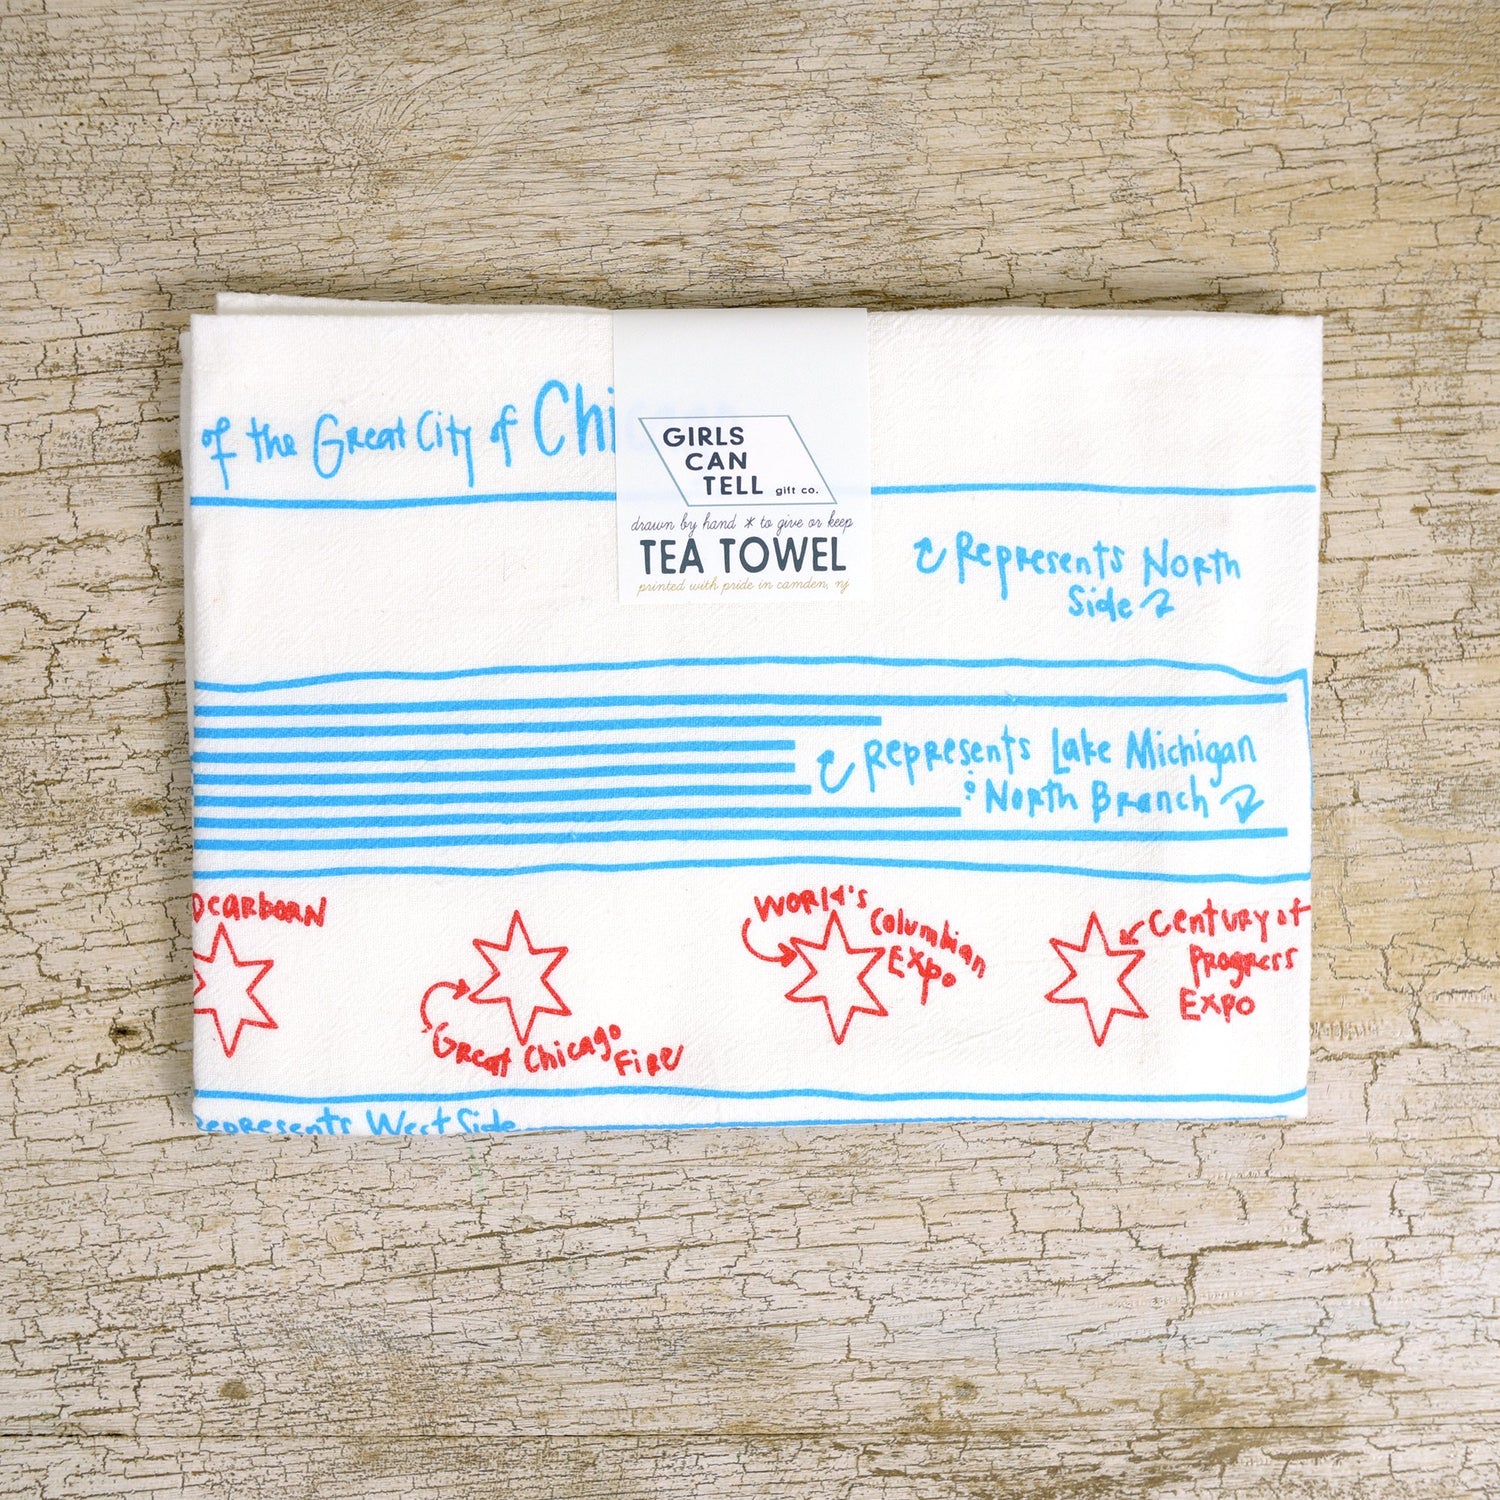 of the Great City of Chi
GIRLS
CAN
TELL gift co.
drawn by hand * to give or keep
TEA TOWEL
printed with pride in camden, nj
Represents North
Side
Represents Lake Michigan
& North Branch
Dearborn
Great Chicago
Fire
World's
Columbian
Expo
Century of
Progress
Expo
Represents West Side